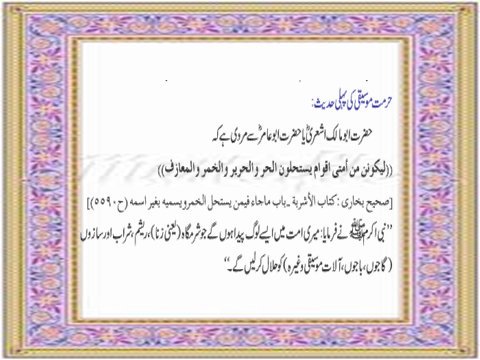 حرمت موسیقی کی پہلی حدیث:
حضرت ابو مالک اشعریؓ یا حضرت ابو عامرؓ سے مروی ہے کہ
((لیکونن من أمتی اقوام یستحلون الحر والحریر والخمر والمعازف))
[صحیح بخاری : کتاب الأشربة ۔ باب ماجاء فیمن یستحل الخمر ویسمیه بغیر اسمه (ح ۵۵۹۰)]
”نبی اکرم ﷺ نے فرمایا: میری امت میں ایسے لوگ پیدا ہوں گے جو شرمگاہ (یعنی زنا)، ریشم، شراب اور سازوں
(گاجوں، باجوں، آلات موسیقی وغیرہ) کو حلال کرلیں گے۔“